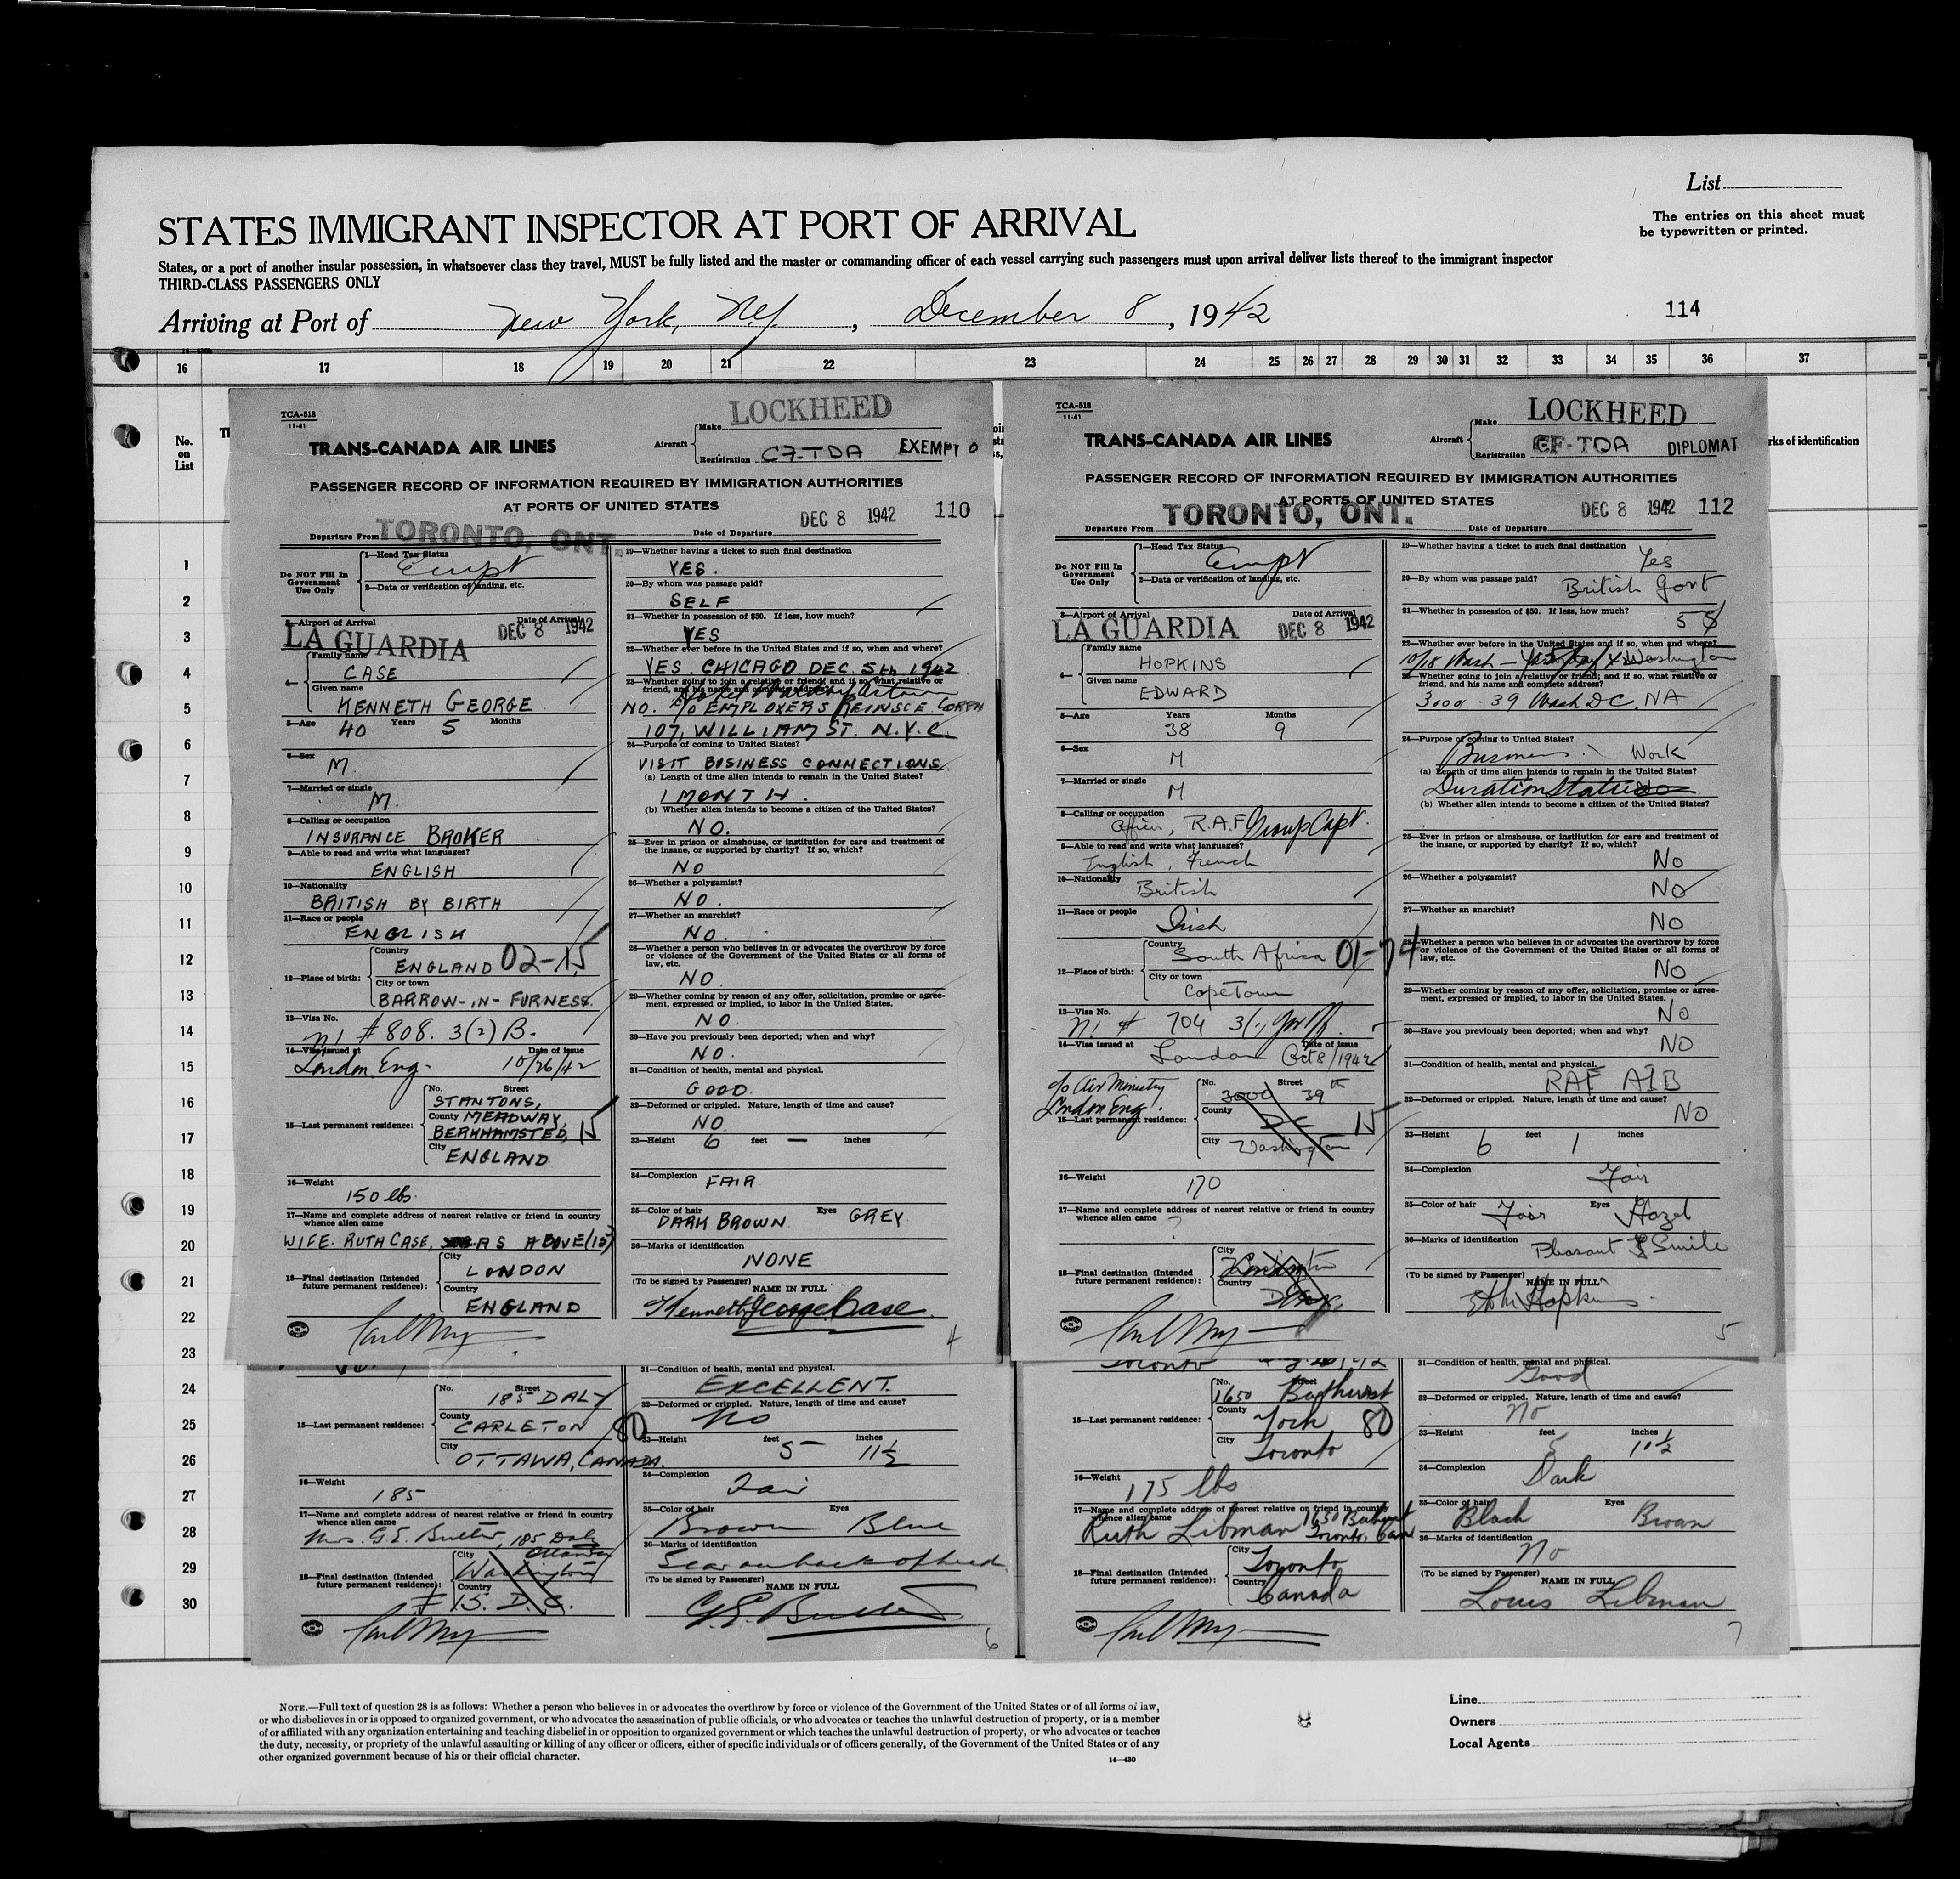 List
STATES IMMIGRANT INSPECTOR AT PORT OF ARRIVAL
The entries on this sheet must
be typewritten or printed.
States, or a port of another insular possession, in whatsoever class they travel, MUST be fully listed and the master or commanding officer of each vessel carrying such passengers must upon arrival deliver lists thereof to the immigrant inspector
THIRD-CLASS PASSENGERS ONLY
Arriving at Port of New York, N.Y., December 8, 1942
114
16 17 18 19 20 21 22 23 24 25 26 27 28 29 30 31 32 33 34 35 36 37
No.
on
List
rks of identification
1
2
3
4
5
6
7
8
9
10
11
12
13
14
15
16
17
18
19
20
21
22
23
24
25
26
27
28
29
30
TCA-518
11-41
LOCKHEED
TRANS-CANADA AIR LINES
Aircraft
Make
Registration CF-TDA
EXEMPT 0
PASSENGER RECORD OF INFORMATION REQUIRED BY IMMIGRATION AUTHORITIES
AT PORTS OF UNITED STATES
DEC 8 1942 110
Departure From TORONTO, ONT.
Date of Departure
Do NOT Fill In
Government
Use Only
1—Head Tax Status
Exmpt
2—Data or verification of landing, etc.
3—Airport of Arrival
Date of Arrival
LA GUARDIA DEC 8 1942
4—
Family name
CASE
Given name
KENNETH GEORGE
5—Age 40 Years 5 Months
6—Sex
M.
7—Married or single
M.
8—Calling or occupation
INSURANCE BROKER
9—Able to read and write what languages?
ENGLISH
10—Nationality
BRITISH BY BIRTH
11—Race or people
ENGLISH
12—Place of birth:
Country
ENGLAND 02-15
City or town
BARROW-IN-FURNESS.
13—Visa No.
NI #808. 3(2) B.
14—Visa issued at
Date of issue
London Eng. 10/26/42
15—Last permanent residence:
No. Street
STANTONS,
County MEADWAY,
BERKHAMSTED, 15
City
ENGLAND
16—Weight
150 lbs.
17—Name and complete address of nearest relative or friend in country
whence alien came
WIFE. RUTH CASE, AS ABOVE (15)
18—Final destination (Intended
future permanent residence):
City
LONDON
Country
ENGLAND
19—Whether having a ticket to such final destination
YES.
20—By whom was passage paid?
SELF
21—Whether in possession of $50. If less, how much?
YES
22—Whether ever before in the United States and if so, when and where?
YES. CHICAGO DEC. 5th 1942
23—Whether going to join a relative or friend; and if so, what relative or
friend, and his name and complete address?
NO. c/o EMPLOYERS REINSCE. CORPN
107, WILLIAM ST. N.Y.C.
24—Purpose of coming to United States?
VISIT BUSINESS CONNECTIONS.
(a) Length of time alien intends to remain in the United States?
1 MONTH.
(b) Whether alien intends to become a citizen of the United States?
NO.
25—Ever in prison or almshouse, or institution for care and treatment of
the insane, or supported by charity? If so, which?
NO
26—Whether a polygamist?
NO.
27—Whether an anarchist?
NO.
28—Whether a person who believes in or advocates the overthrow by force
or violence of the Government of the United States or all forms of
law, etc.
NO.
29—Whether coming by reason of any offer, solicitation, promise or agree-
ment, expressed or implied, to labor in the United States.
NO.
30—Have you previously been deported; when and why?
NO.
31—Condition of health, mental and physical.
GOOD.
32—Deformed or crippled. Nature, length of time and cause?
NO
33—Height 6 feet — inches
34—Complexion
FAIR
35—Color of hair Eyes
DARK BROWN GREY
36—Marks of identification
NONE
(To be signed by Passenger) NAME IN FULL
Kenneth George Case
4
TCA-518
11-41
LOCKHEED
TRANS-CANADA AIR LINES
Aircraft
Make
Registration CF-TDA
DIPLOMAT
PASSENGER RECORD OF INFORMATION REQUIRED BY IMMIGRATION AUTHORITIES
AT PORTS OF UNITED STATES
DEC 8 1942 112
Departure From TORONTO, ONT.
Date of Departure
Do NOT Fill In
Government
Use Only
1—Head Tax Status
Exmpt
2—Data or verification of landing, etc.
3—Airport of Arrival
Date of Arrival
LA GUARDIA DEC 8 1942
4—
Family name
HOPKINS
Given name
EDWARD
5—Age Years Months
38 9
6—Sex
M
7—Married or single
M
8—Calling or occupation
Officer, R.A.F. Group Capt.
9—Able to read and write what languages?
English, French
10—Nationality
British
11—Race or people
Irish
12—Place of birth:
Country
South Africa 01-74
City or town
Capetown
13—Visa No.
NI # 704 3(1)
14—Visa issued at
Date of issue
London Oct 8/1942
c/o Air Ministry
London Eng.
15—Last permanent residence:
No. Street
3000 39th
County
DC 15
City
Washington
16—Weight
170
17—Name and complete address of nearest relative or friend in country
whence alien came
?
18—Final destination (Intended
future permanent residence):
City
Country
19—Whether having a ticket to such final destination
Yes
20—By whom was passage paid?
British Govt
21—Whether in possession of $50. If less, how much?
22—Whether ever before in the United States and if so, when and where?
10/18 Wash — Washington
23—Whether going to join a relative or friend; and if so, what relative or
friend, and his name and complete address?
3000 - 39 Wash DC. NA
24—Purpose of coming to United States?
Business Work
(a) Length of time alien intends to remain in the United States?
Duration Status
(b) Whether alien intends to become a citizen of the United States?
25—Ever in prison or almshouse, or institution for care and treatment of
the insane, or supported by charity? If so, which?
No
26—Whether a polygamist?
No
27—Whether an anarchist?
No
28—Whether a person who believes in or advocates the overthrow by force
or violence of the Government of the United States or all forms of
law, etc.
No
29—Whether coming by reason of any offer, solicitation, promise or agree-
ment, expressed or implied, to labor in the United States.
No
30—Have you previously been deported; when and why?
No
31—Condition of health, mental and physical.
RAF A1B
32—Deformed or crippled. Nature, length of time and cause?
No
33—Height feet inches
6 1
34—Complexion
Fair
35—Color of hair Eyes
Fair Hazel
36—Marks of identification
Pleasant Smile
(To be signed by Passenger) NAME IN FULL
Hopkins
5
15—Last permanent residence:
No. Street
185 DALY
County
CARLETON 80
City
OTTAWA, CANADA.
16—Weight
185
17—Name and complete address of nearest relative or friend in country
whence alien came
Mrs. G.E. Butler, 185 Daly
Ottawa
18—Final destination (Intended
future permanent residence):
City
Washington
Country
D.C.
31—Condition of health, mental and physical.
EXCELLENT.
32—Deformed or crippled. Nature, length of time and cause?
No
33—Height feet inches
5 11½
34—Complexion
Fair
35—Color of hair Eyes
Brown Blue
36—Marks of identification
Scar on back of head
(To be signed by Passenger)
NAME IN FULL
G.E. Butler
6
Toronto
15—Last permanent residence:
No. Street
1650 Bathurst
County
York 80
City
Toronto
16—Weight
175 lbs
17—Name and complete address of nearest relative or friend in country
whence alien came
Ruth Libman 1650 Bathurst
Toronto, Can
18—Final destination (Intended
future permanent residence):
City
Toronto
Country
Canada
31—Condition of health, mental and physical.
Good
32—Deformed or crippled. Nature, length of time and cause?
No
33—Height feet inches
5 10½
34—Complexion
Dark
35—Color of hair Eyes
Black Brown
36—Marks of identification
No
(To be signed by Passenger)
NAME IN FULL
Louis Libman
7
NOTE.—Full text of question 28 is as follows: Whether a person who believes in or advocates the overthrow by force or violence of the Government of the United States or of all forms of law,
or who disbelieves in or is opposed to organized government, or who advocates the assassination of public officials, or who advocates or teaches the unlawful destruction of property, or is a member
of or affiliated with any organization entertaining and teaching disbelief in or opposition to organized government or which teaches the unlawful destruction of property, or who advocates or teaches
the duty, necessity, or propriety of the unlawful assaulting or killing of any officer or officers, either of specific individuals or of officers generally, of the Government of the United States or of any
other organized government because of his or their official character.
14—430
Line
Owners
Local Agents